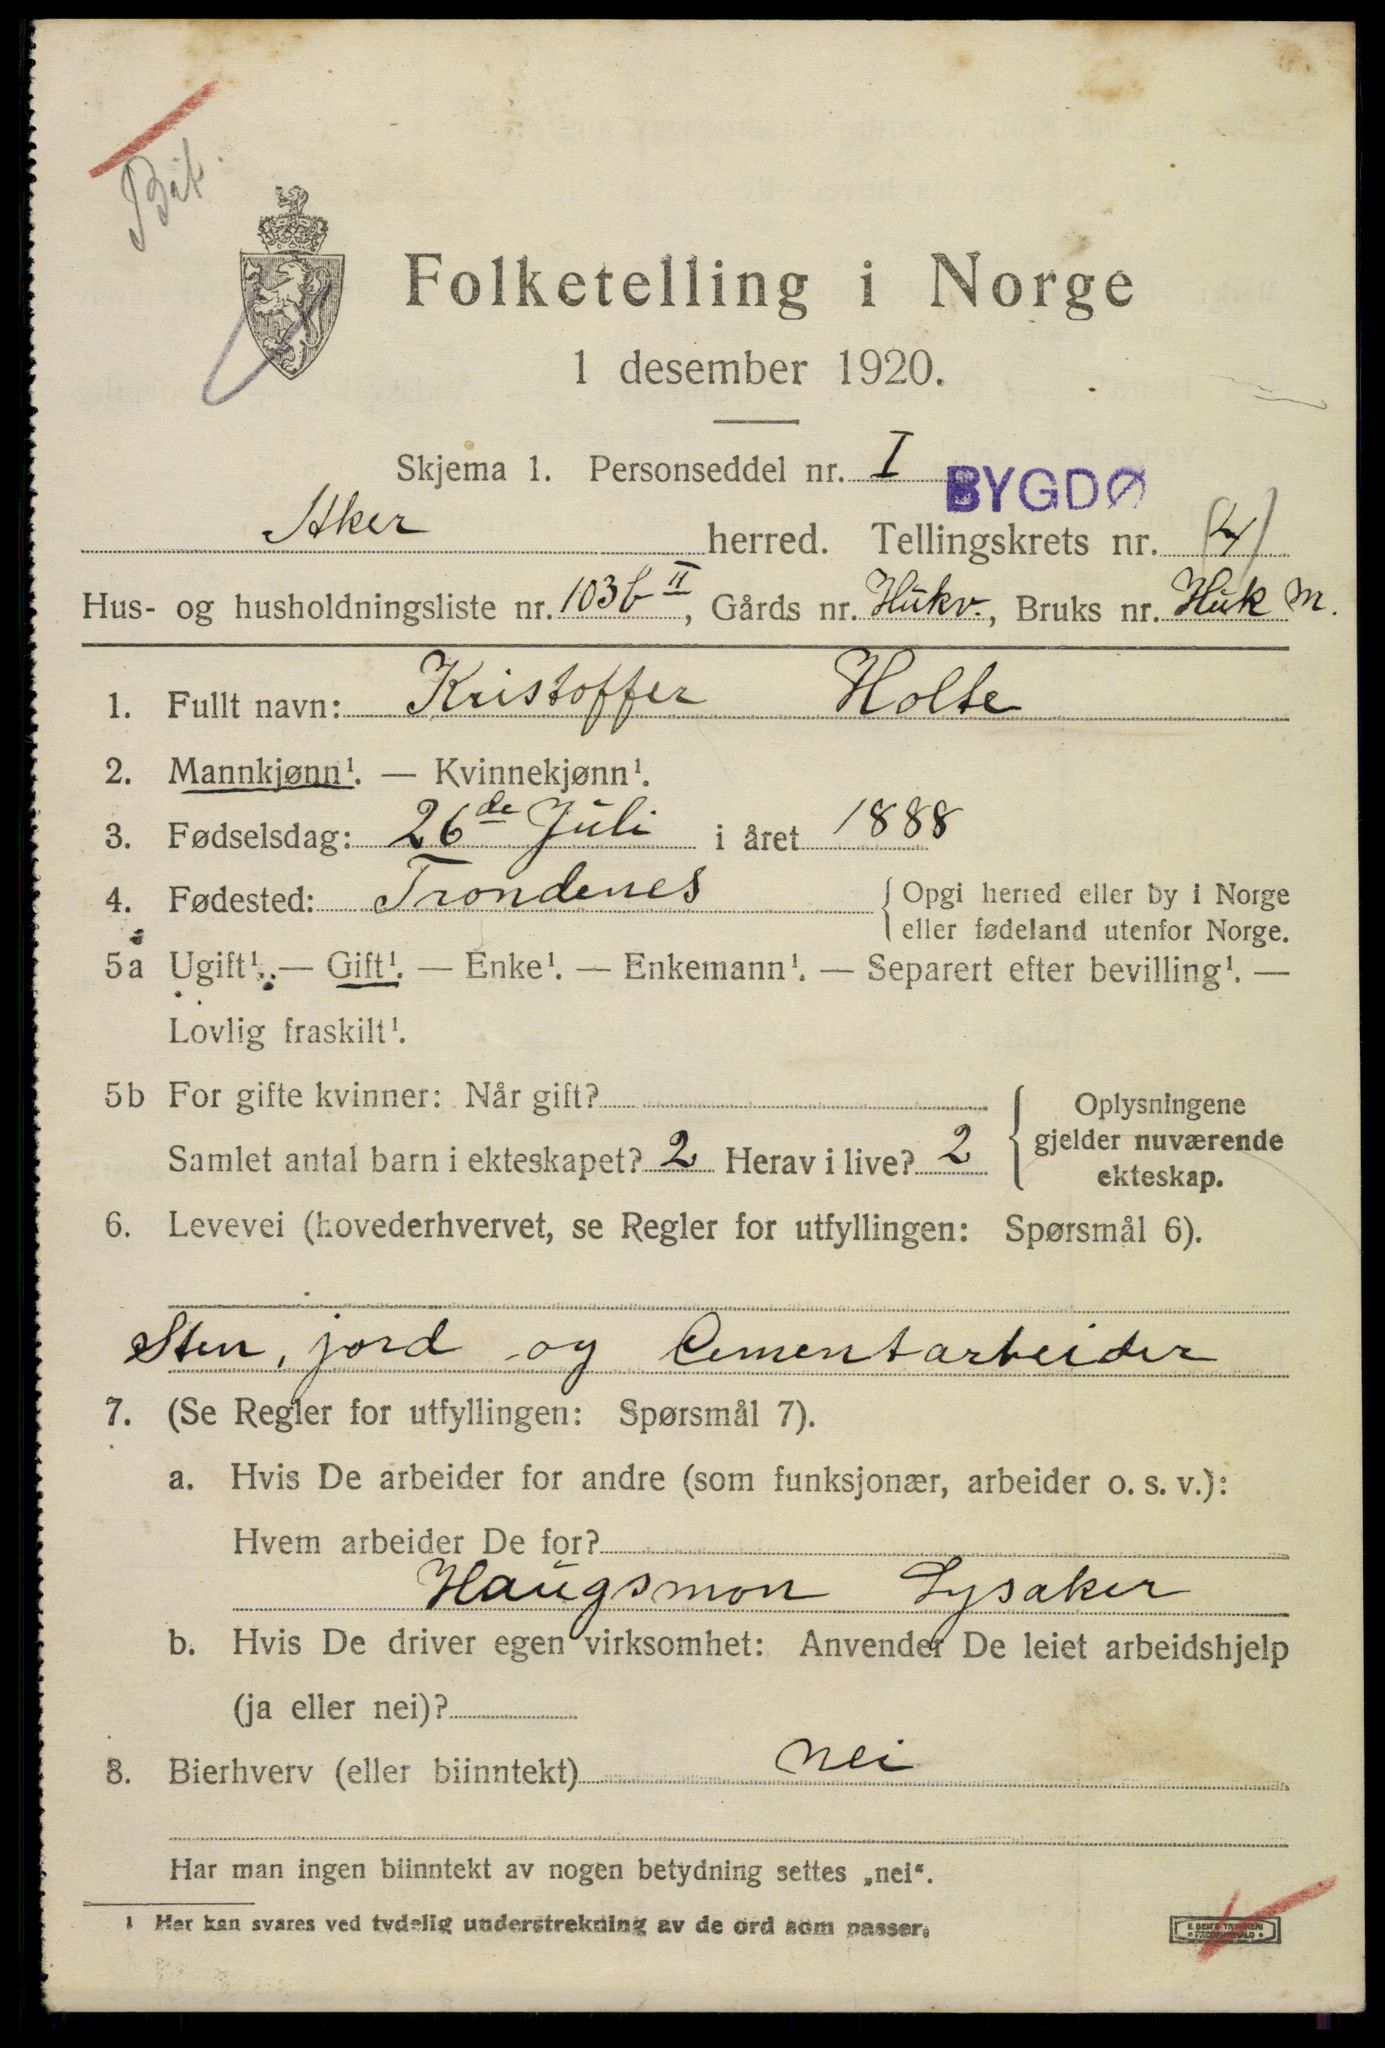 Bik.
Folketelling i Norge
1 desember 1920.
Skjema 1. Personseddel nr. I
BYGDØ
Aker herred. Tellingskrets nr. (4)
Hus- og husholdningsliste nr. 103b II, Gårds nr. Hukv., Bruks nr. Huk M.
1. Fullt navn: Kristoffer Holte
2. Mannkjønn¹. — Kvinnekjønn¹.
3. Fødselsdag: 26de Juli i året 1888
4. Fødested: Trondenes { Opgi herred eller by i Norge
eller fødeland utenfor Norge.
5a Ugift¹. — Gift¹. — Enke¹. — Enkemann¹. — Separert efter bevilling¹. —
Lovlig fraskilt¹.
5b For gifte kvinner: Når gift?
Samlet antal barn i ekteskapet? 2 Herav i live? 2
{ Oplysningene
gjelder nuværende
ekteskap.
6. Levevei (hovederhvervet, se Regler for utfyllingen: Spørsmål 6).
Sten, jord og Cementarbeider
7. (Se Regler for utfyllingen: Spørsmål 7).
a. Hvis De arbeider for andre (som funksjonær, arbeider o. s. v.):
Hvem arbeider De for?
Haugsmon Lysaker
b. Hvis De driver egen virksomhet: Anvender De leiet arbeidshjelp
(ja eller nei)?
8. Bierhverv (eller biinntekt) nei
Har man ingen biinntekt av nogen betydning settes „nei“.
1 Her kan svares ved tydelig understrekning av de ord som passer.